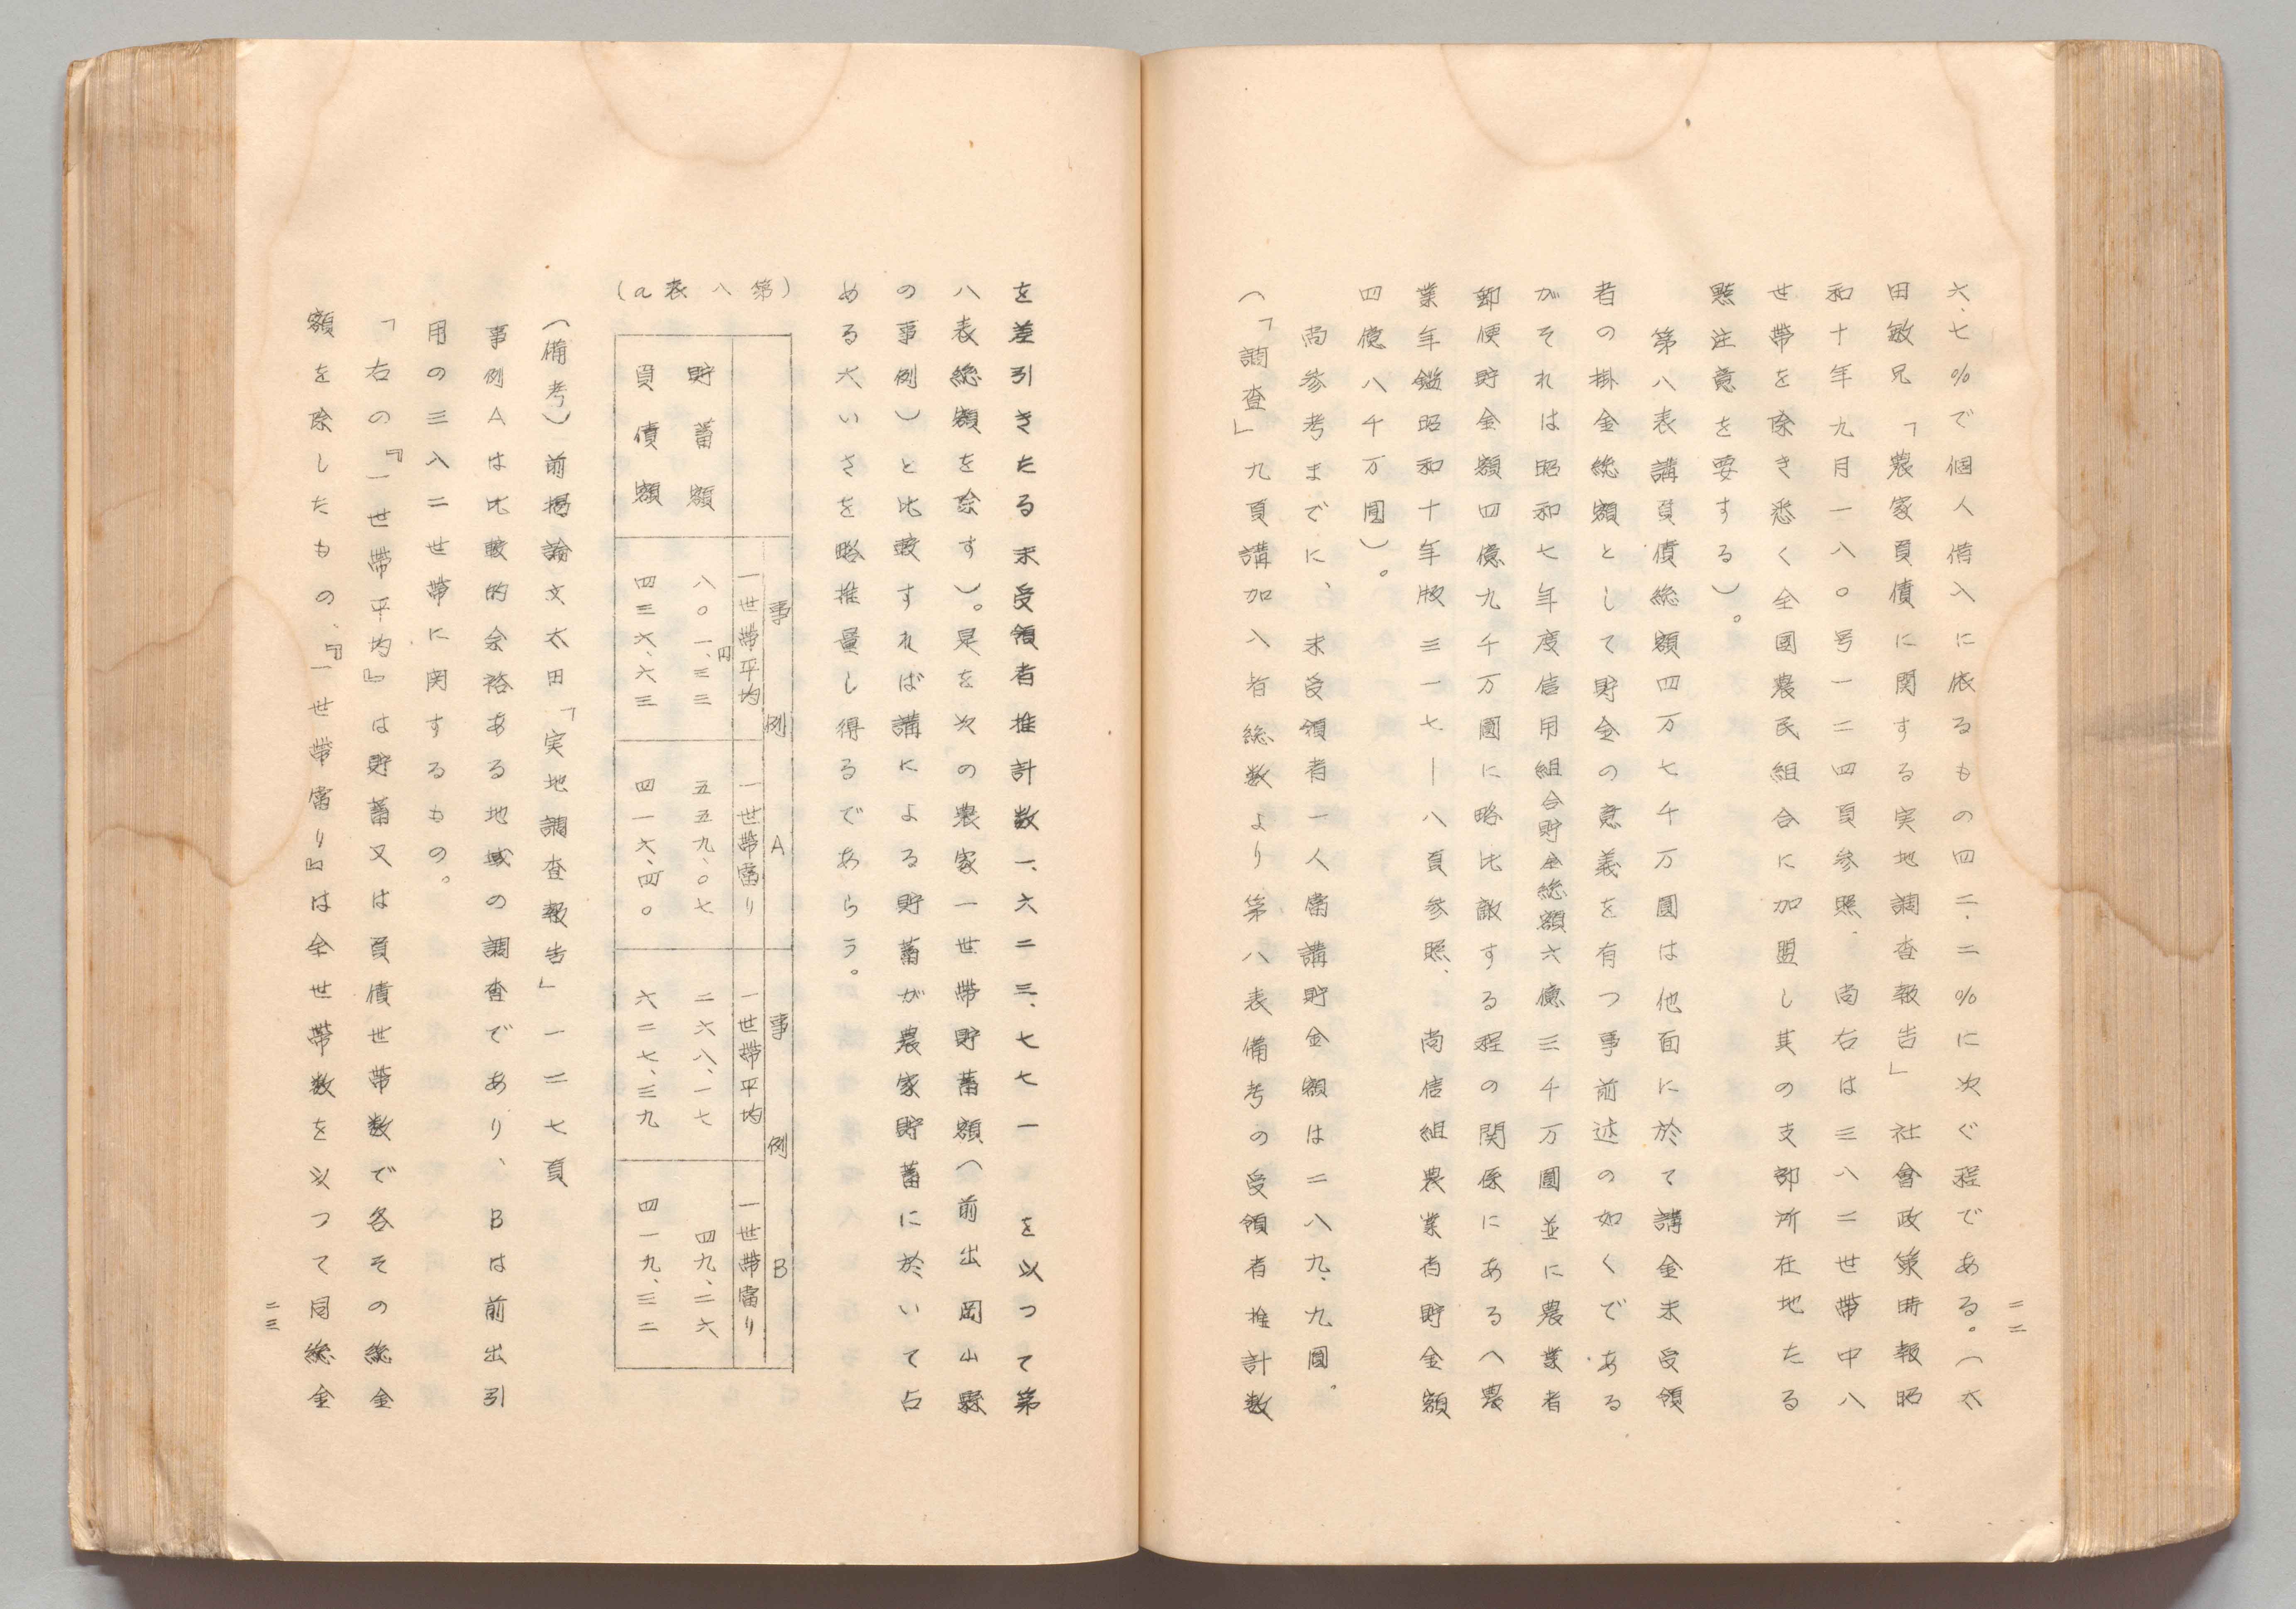 二二
六、七％で個人借入に依るものの四二．二％に次ぐ程である。（太
田敏兄「農家負債に関する実地調査報告」社會政策時報昭
和十年九月一八〇号一二四頁参照．尚右は三八二世帯中八
世帯を除き悉く全國農民組合に加盟し其の支部所在地たる
點注意を要する）。
第八表講負債総額四万七千万圓は他面に於て講金未受領
者の掛金総額として貯金の意義を有つ事前述の如くである
がそれは昭和七年度信用組合貯金総額六億三千万圓並に農業者
郵便貯金額四億九千万圓に略比敵する程の関係にある（農
業年鑑昭和十年版三一七―八頁参照、尚信組農業者貯金額
四億八千万圓）。
尚参考までに、未受領者一人當講貯金額は二八九．九圓。
（「調査」九頁講加入者総数より第八表備考の受領者推計数
を差引きたる未受領者推計数一、六二三、七七一を以つて第
八表総額を除す）。是を次の農家一世帯貯蓄額（前出岡山縣
の事例）と比較すれば講による貯蓄が農家貯蓄に於いて占
める大いさを略推量し得るであらう。
（第八表a）
事例A　事例B
一世帯平均　一世帯當り　一世帯平均　一世帯當り
貯蓄額　八〇一、三三円　五五九、〇七　二六八、一七　四九、二六
負債額　四三六、六三　四一六、四〇　六二七、三九　四一九、三二
（備考）前掲論文太田「実地調査報告」一二七頁
事例Aは比較的余裕ある地域の調査であり、Bは前出引
用の三八二世帯に関するもの。
「右の『一世帯平均』は貯蓄又は負債世帯数で各その総金
額を除したもの、『一世帯當り』は全世帯数を以つて同総金
二三